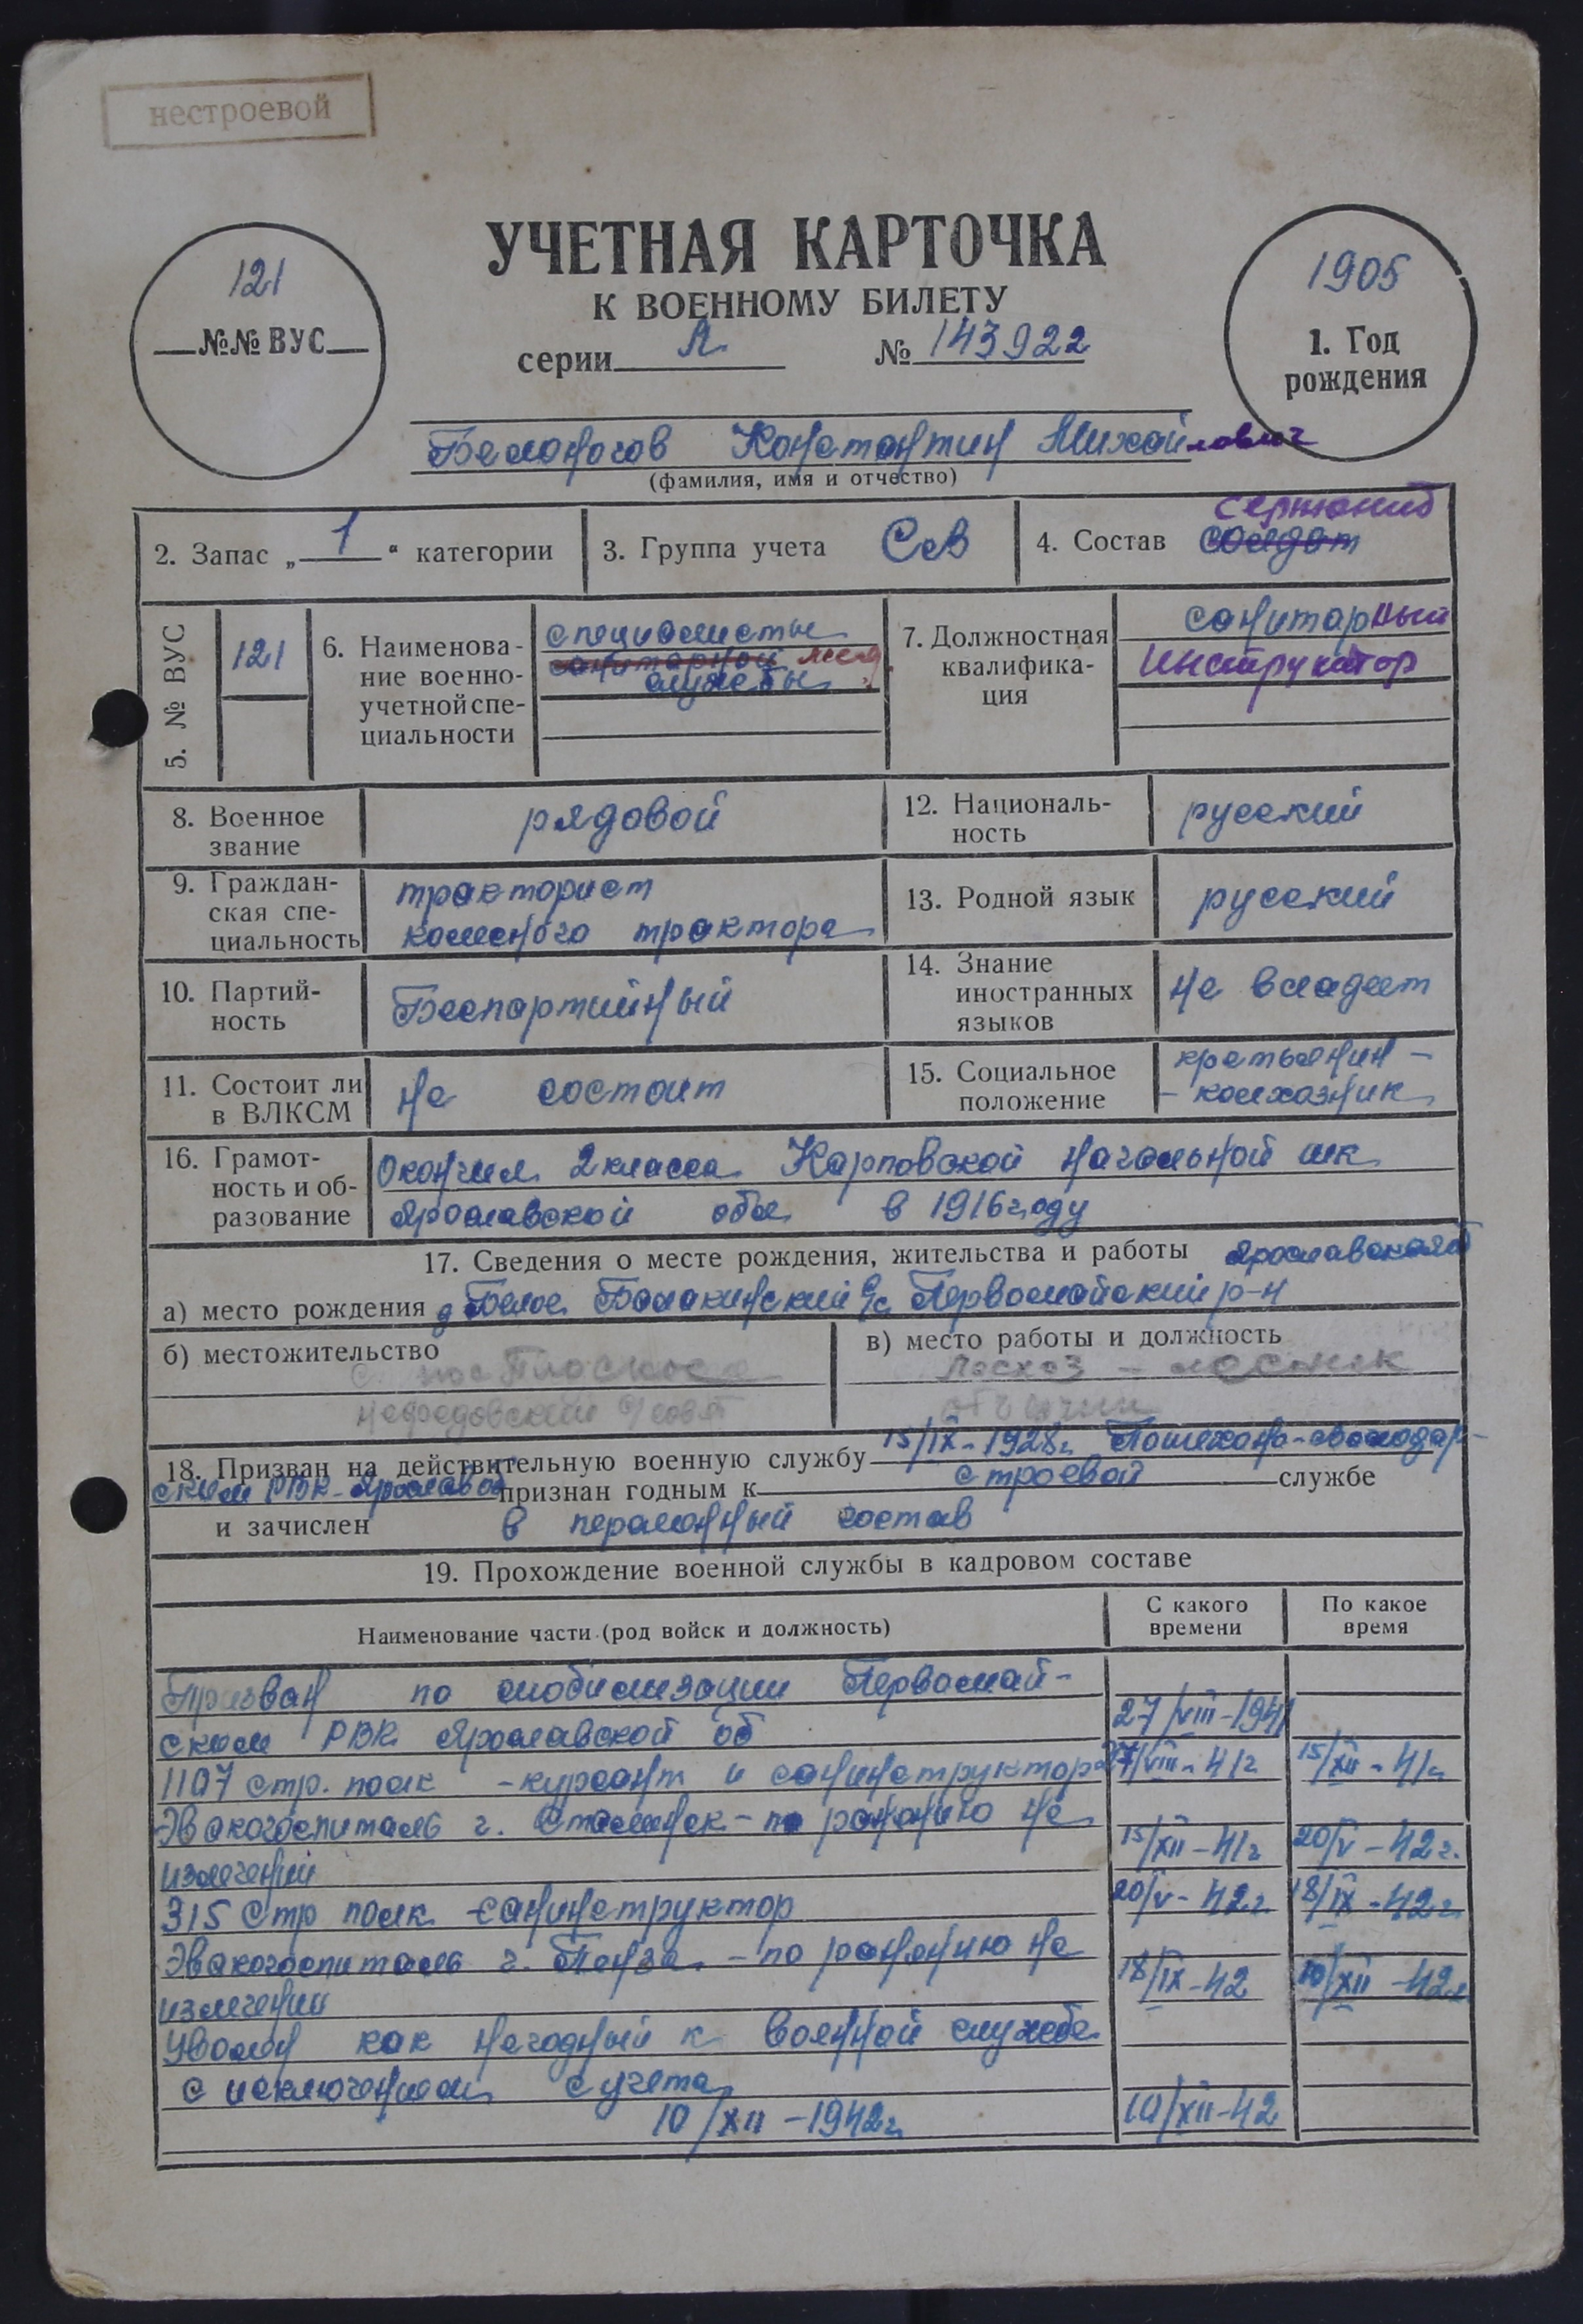 нестроевой
УЧЕТНАЯ КАРТОЧКА
К ВОЕННОМУ БИЛЕТУ
серии А № 143922
121
№№ ВУС
1905
1. Год
рождения
Белоногов Константин Михайлович
(фамилия, имя и отчество)
2. Запас „ 1 “ категории
3. Группа учета СА
4. Состав солдат сержантов
5. № ВУС 121
6. Наименова-
ние военно-
учетной спе-
циальности
специалисты
санитарной мед.
службы
7. Должностная
квалифика-
ция
санитарный
инструктор
8. Военное
звание
рядовой
12. Националь-
ность
русский
9. Граждан-
ская спе-
циальность
тракторист
колесного трактора
13. Родной язык русский
10. Партий-
ность
Беспартийный
14. Знание
иностранных
языков
не владеет
11. Состоит ли
в ВЛКСМ
не состоит
15. Социальное
положение
крестьянин -
- колхозник
16. Грамот-
ность и об-
разование
Окончил 2 класса Карповской начальной шк
Ярославской обл. в 1916 году
17. Сведения о месте рождения, жительства и работы Ярославской
а) место рождения д Белое Балакинский с/с Первомайский р-н
б) местожительство
в) место работы и должность
Лесхоз - лесник
18. Призван на действительную военную службу 15/IX-1928г. Пошехоно-володар-
ским РВК Ярослав об признан годным к строевой службе
и зачислен в переменный состав
19. Прохождение военной службы в кадровом составе
Наименование части (род войск и должность)
С какого
времени
По какое
время
Призван по мобилизации Первомай-
ским РВК Ярославской об 27/VIII-1941
1107 стр. полк - курсант и санинструктор 27/VIII-41г 15/XII-41г
Эвакогоспиталь г. - по ранению на
излечении 15/XII-41г 20/V-42г.
315 стр полк - санинструктор 20/V-42г. 18/IX-42г.
Эвакогоспиталь г. Пенза - по ранению на
излечении 18/IX-42 10/XII-42г
Уволен как негодный к военной службе
с исключением с учета
10/XII-1942г. 10/XII-42